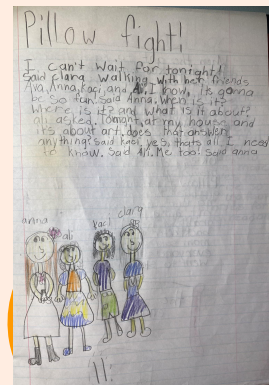 Pillow fight!
I can't wait for tonight!
said clara walking with her friends
Ava, Anna, kaci and Ali. I know, its gonna
be so fun. said Anna. When is it?
Where is it? and what is it about?
ali asked. Tonight, at my house, and
it's about art. does that answer
anything? said kaci. yes, thats all I need
to know. said Ali. Me too! said anna
anna
ali
kaci
clara